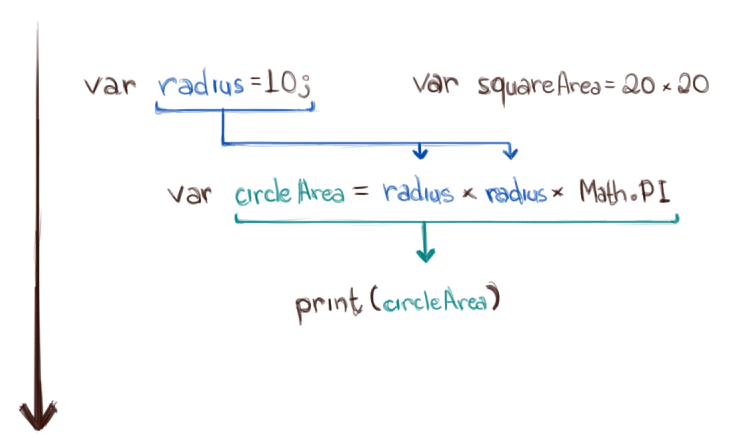 var radius=10;
var squareArea=20×20
var circleArea = radius × radius × Math.PI
print(circleArea)